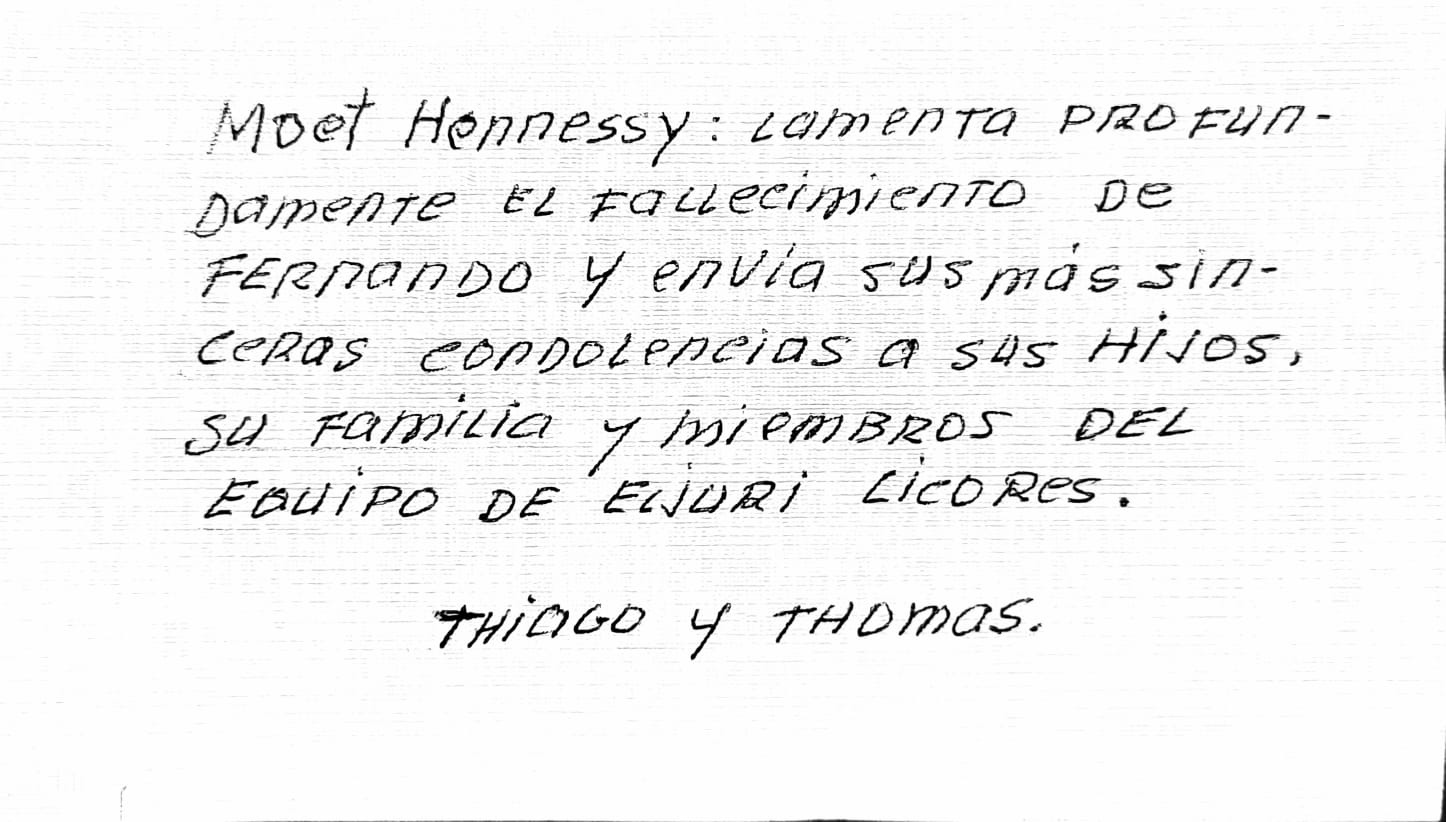 Moet Hennessy: Lamenta PROFUN-
Damente EL Fallecimiento De
FERnanDO y envía sus más sin-
ceRas conDolencias a sus Hijos,
su Familia y miemBROS DEL
EQUIPO DE ElJURi LicoRes.
THiaGO y THOmas.